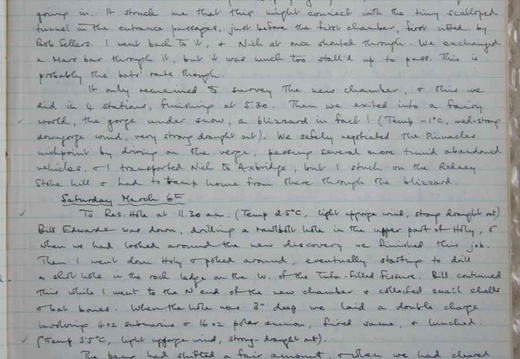 going in. It struck me that this might connect with the tiny scalloped
tunnel in the entrance passages, just before the first chamber, first noted by
Bob Sellers. I went back to it, & Nich at once shouted through. We exchanged
a Mars bar through it, but it was much too stal'd up to pass. This is
probably the bats' route though.
It only remained to survey the new chamber, & this we
did in 4 stations, finishing at 5.30. Then we exited into a fairy
world, the gorge under snow, a blizzard in fact! (Temp -1°C, mod-strong
downgorge wind, very strong draught out). We safely negotiated the Pinnacles
midpoint by driving on the verge, passing several more timid abandoned
vehicles, & I transported Nich to Axbridge, but I stuck on the Rodney
Stoke hill & had to tramp home from there through the blizzard.
Saturday March 6th
To Res. Hole at 11.30 am. (Temp 2.5°C, light upgorge wind, strong draught out)
Bill Edwards was down, drilling a rawlbolt hole in the upper part of Holy, &
when we had looked around the new discovery we finished this job.
Then I went down Holy & poked around, eventually starting to drill
a shot hole in the rock ledge on the W. of the Tufa-Filled Fissure. Bill continued
this while I went to the N end of the new chamber & collected snail shells
& bat bones. When the hole was 3" deep we laid a double charge
involving 4oz submarine & 16oz polar ammon, fired same, & lunched.
(Temp 3.5°C, light upgorge wind, strong draught out).
The bang had shifted a fair amount, & when we had cleared